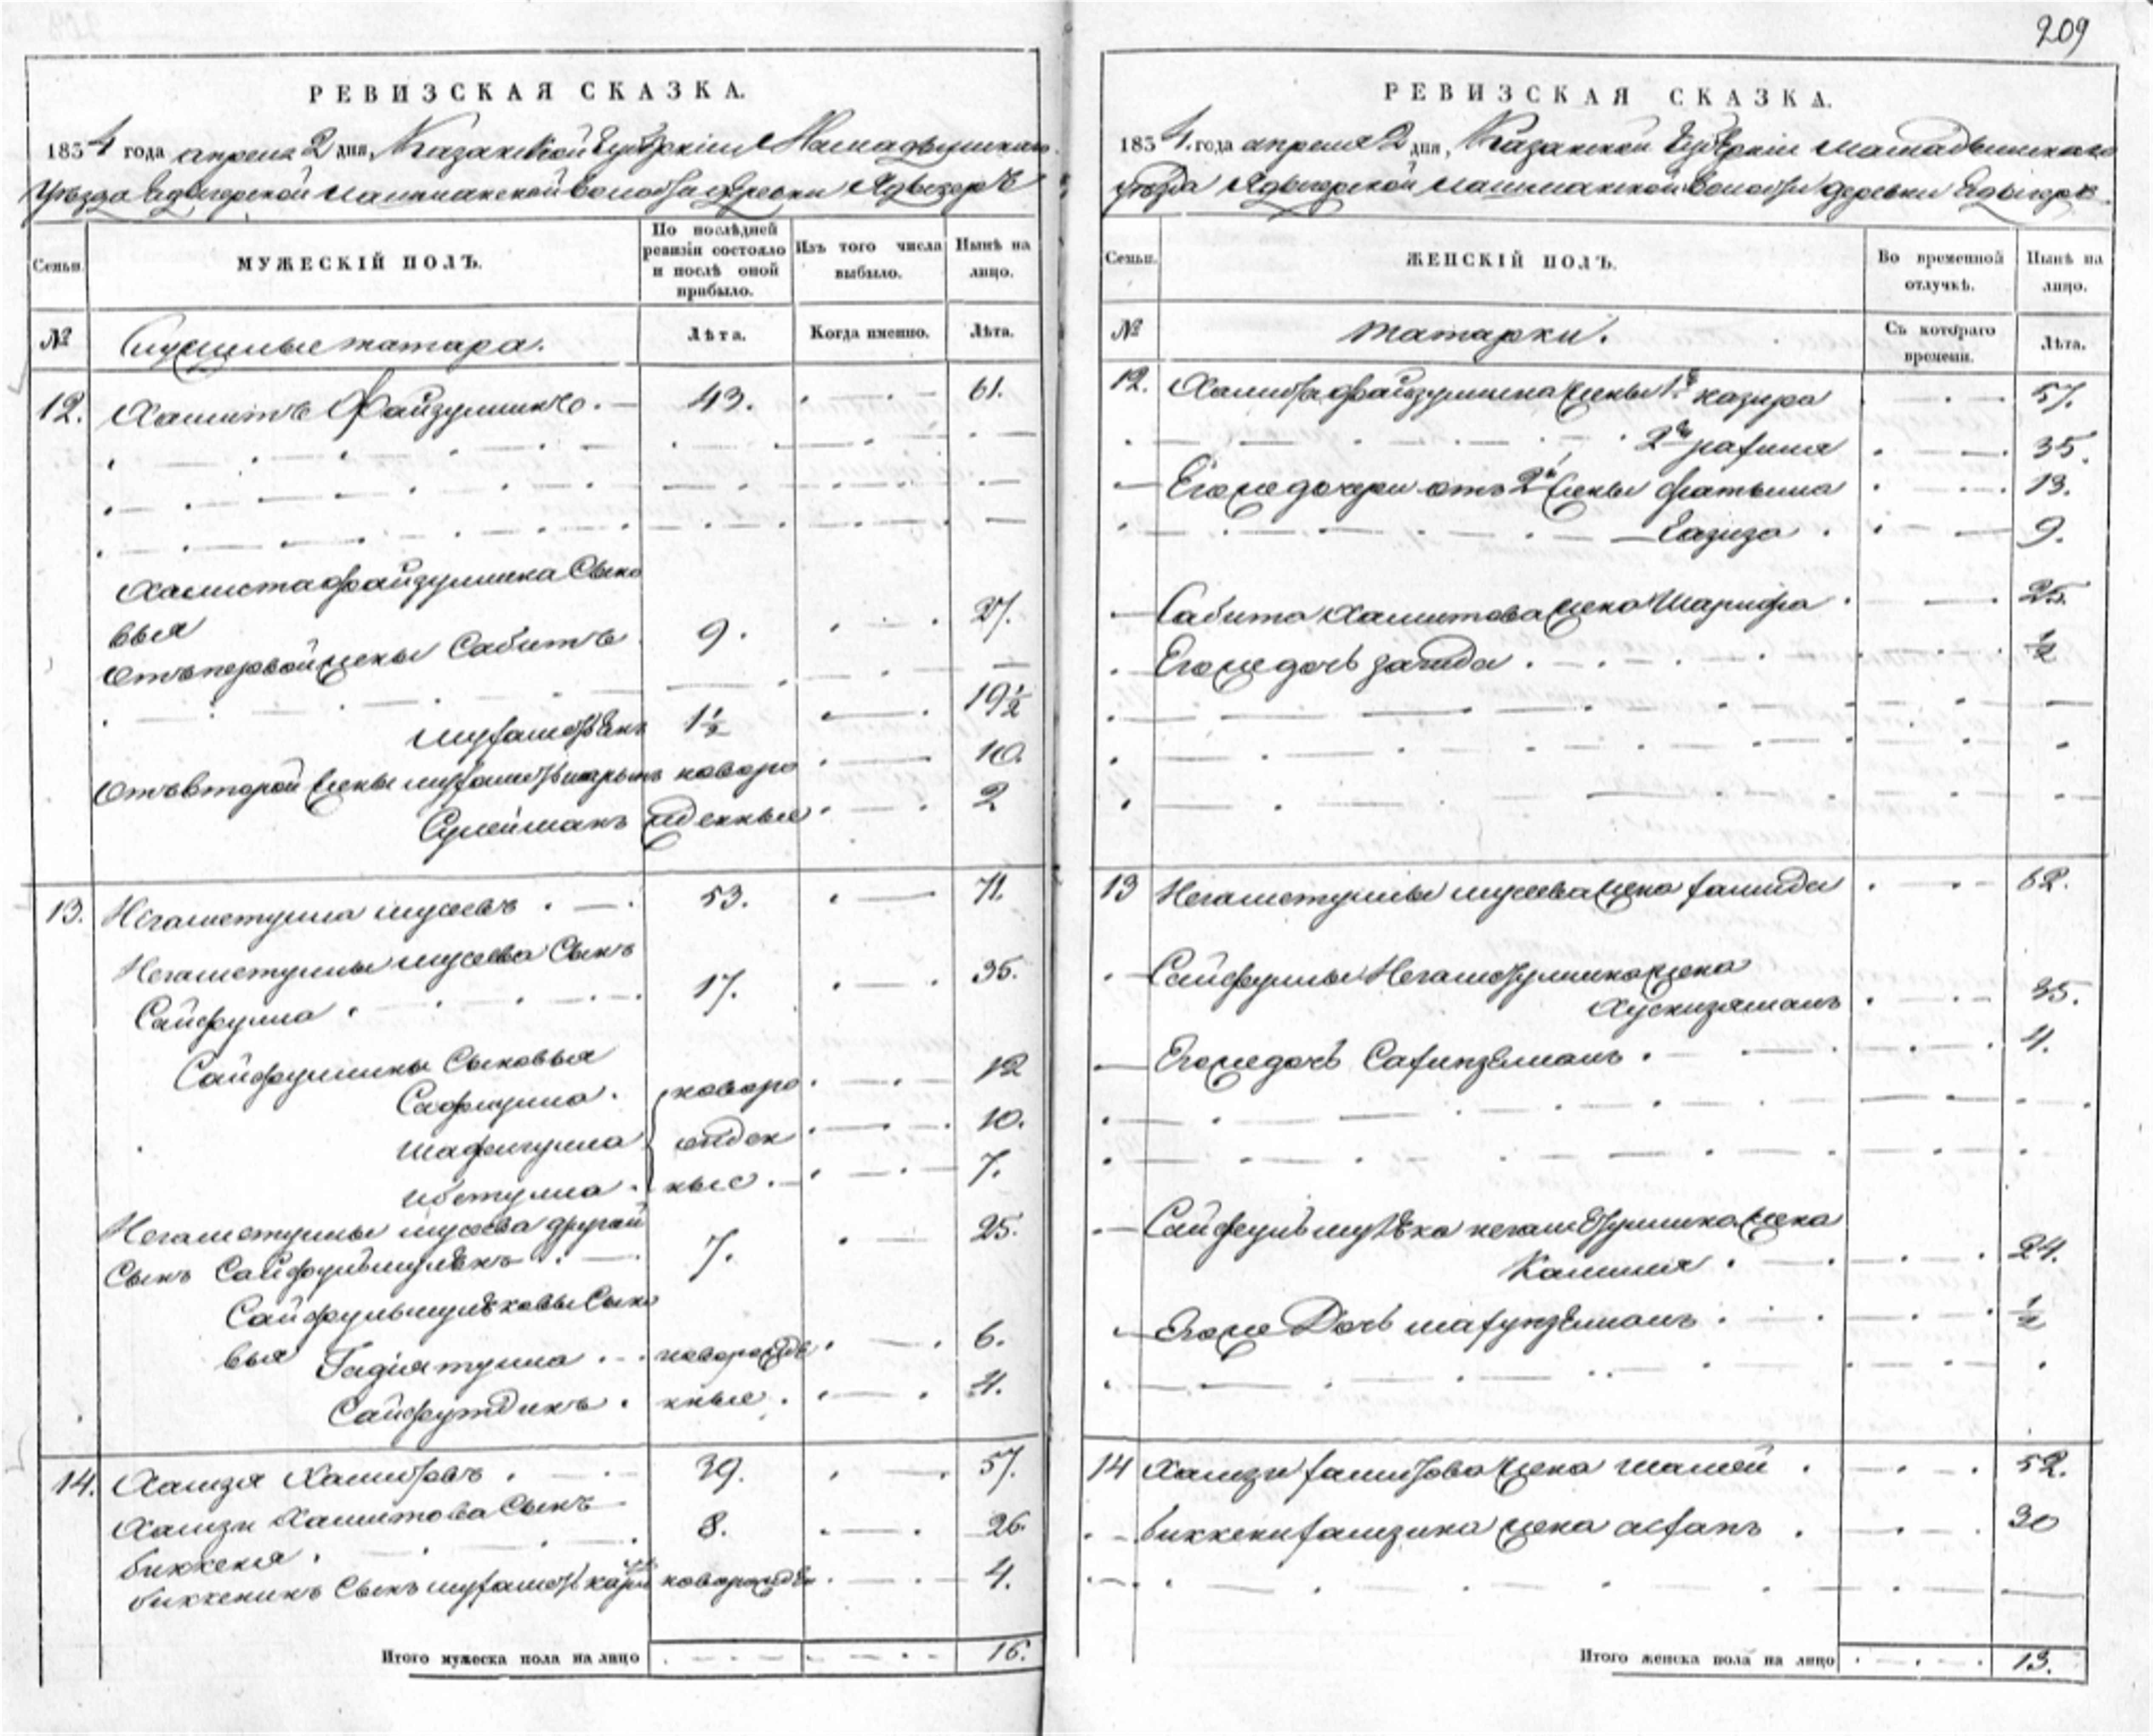 209
РЕВИЗСКАЯ СКАЗКА.
1834 года апреля 2 дня, Казанской Губерніи Мамадышскаго
Уѣзда Ядыгерской волости деревни Ядыгеръ
Семьи.
МУЖЕСКІЙ ПОЛЪ.
По послѣдней ревизіи состояло и послѣ оной прибыло.
Изъ того числа выбыло.
Нынѣ на лицо.
№
татара.
Лѣта.
Когда именно.
Лѣта.
12. Хамитъ Файзуллинъ. 43. 61.
Хамита Файзуллина Сыно
вья
Отъ первой жены Сабитъ 9. 27.
1½ 19½
Отъ второй жены новоро 10.
Сулейманъ жденные 2
13. Негаметулла Мусеевъ 53. 71.
Негаметуллы Мусеева Сынъ
Сайфулла 17. 35.
Сайфуллины Сыновья
Сафиулла новоро 12
Шафигулла жден 10.
Ибетулла ные 7.
Негаметуллы Мусеева другой
Сынъ Сайфульмулюкъ 7. 25.
Сайфульмулюковы Сыно
вья Гадіятулла новорожде 6.
Сайфутдинъ нные 4.
14. Хамзя Хамитовъ 39. 57.
Хамзи Хамитова Сынъ
Биккеня 8. 26.
Биккенинъ Сынъ новорожден 4.
Итого мужеска пола на лицо 16.
РЕВИЗСКАЯ СКАЗКА.
1834 года апреля 2 дня, Казанской Губерніи Мамадышскаго
уѣзда Ядыгерской волости деревни Ядыгеръ
Семьи.
ЖЕНСКІЙ ПОЛЪ.
Во временной отлучкѣ.
Нынѣ на лицо.
№
татарки.
Съ котораго времени.
Лѣта.
12. Хамита Файзуллина жены 1я 57.
2я 35.
Его же дочери отъ 2й жены Фатыма 13.
Газиза 9.
Сабита Хамитова жена Шарифа 25.
Его же дочь Загида ½
13 Негаметуллы Мусеева жена Хамида 62.
Сайфуллы Негаметуллина жена
Хуснизямалъ 35.
Его же дочь 4.
негаметуллина жена
Камиля 24.
Его же Дочь ½
14 Хамзи Хамитова жена 52.
Биккени Хамзина жена 30
Итого женска пола на лицо 13.